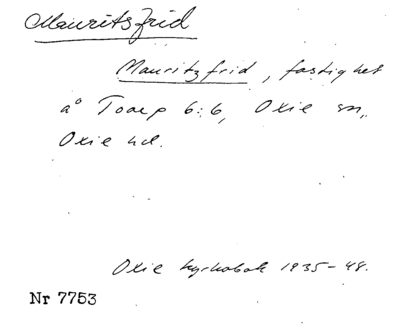 Mauritsfrid
Mauritzfrid, fastighet
å Toarp 6:6, Oxie sn,
Oxie hd.
Oxie kyrkobok 1935-48.
Nr 7753